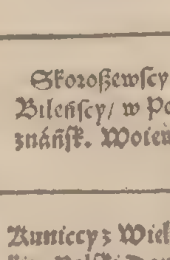 Skoroßewscy
Bileńscy / w Po
znáńſk. Woiew
Kuniccy z Wiel